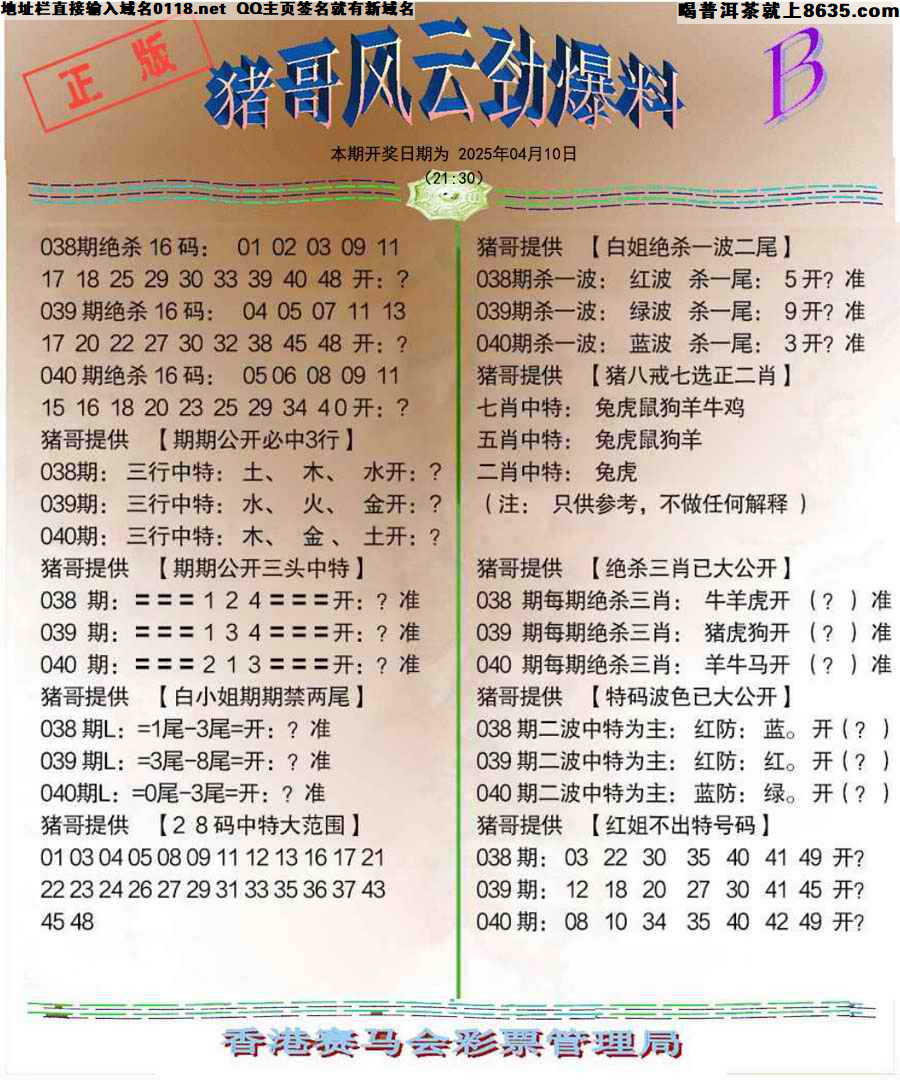 地址栏直接输入域名0118.net QQ主页签名就有新域名
喝普洱茶就上8635.com
正版
猪哥风云劲爆料
B
本期开奖日期为 2025年04月10日
(21:30)
038期绝杀16码： 01 02 03 09 11
17 18 25 29 30 33 39 40 48 开：?
039期绝杀16码： 04 05 07 11 13
17 20 22 27 30 32 38 45 48 开：?
040期绝杀16码： 05 06 08 09 11
15 16 18 20 23 25 29 34 40开：?
猪哥提供 【期期公开必中3行】
038期：三行中特：土、 木、 水开：?
039期：三行中特：水、 火、 金开：?
040期：三行中特：木、 金、 土开：?
猪哥提供 【期期公开三头中特】
038 期：===124===开：? 准
039 期：===134===开：? 准
040 期：===213===开：? 准
猪哥提供 【白小姐期期禁两尾】
038期L：=1尾-3尾=开：? 准
039期L：=3尾-8尾=开：? 准
040期L：=0尾-3尾=开：? 准
猪哥提供 【28码中特大范围】
01 03 04 05 08 09 11 12 13 16 17 21
22 23 24 26 27 29 31 33 35 36 37 43
45 48
猪哥提供 【白姐绝杀一波二尾】
038期杀一波： 红波 杀一尾： 5开? 准
039期杀一波： 绿波 杀一尾： 9开? 准
040期杀一波： 蓝波 杀一尾： 3开? 准
猪哥提供 【猪八戒七选正二肖】
七肖中特： 兔虎鼠狗羊牛鸡
五肖中特： 兔虎鼠狗羊
二肖中特： 兔虎
（注： 只供参考，不做任何解释 ）
猪哥提供 【绝杀三肖已大公开】
038 期每期绝杀三肖： 牛羊虎开 （? ）准
039 期每期绝杀三肖： 猪虎狗开 （? ）准
040 期每期绝杀三肖： 羊牛马开 （? ）准
猪哥提供 【特码波色已大公开】
038期二波中特为主： 红防： 蓝。 开（? ）
039期二波中特为主： 红防： 红。 开（? ）
040期二波中特为主： 蓝防： 绿。 开（? ）
猪哥提供 【红姐不出特号码】
038期： 03 22 30 35 40 41 49 开?
039期： 12 18 20 27 30 41 45 开?
040期： 08 10 34 35 40 42 49 开?
香港赛马会彩票管理局